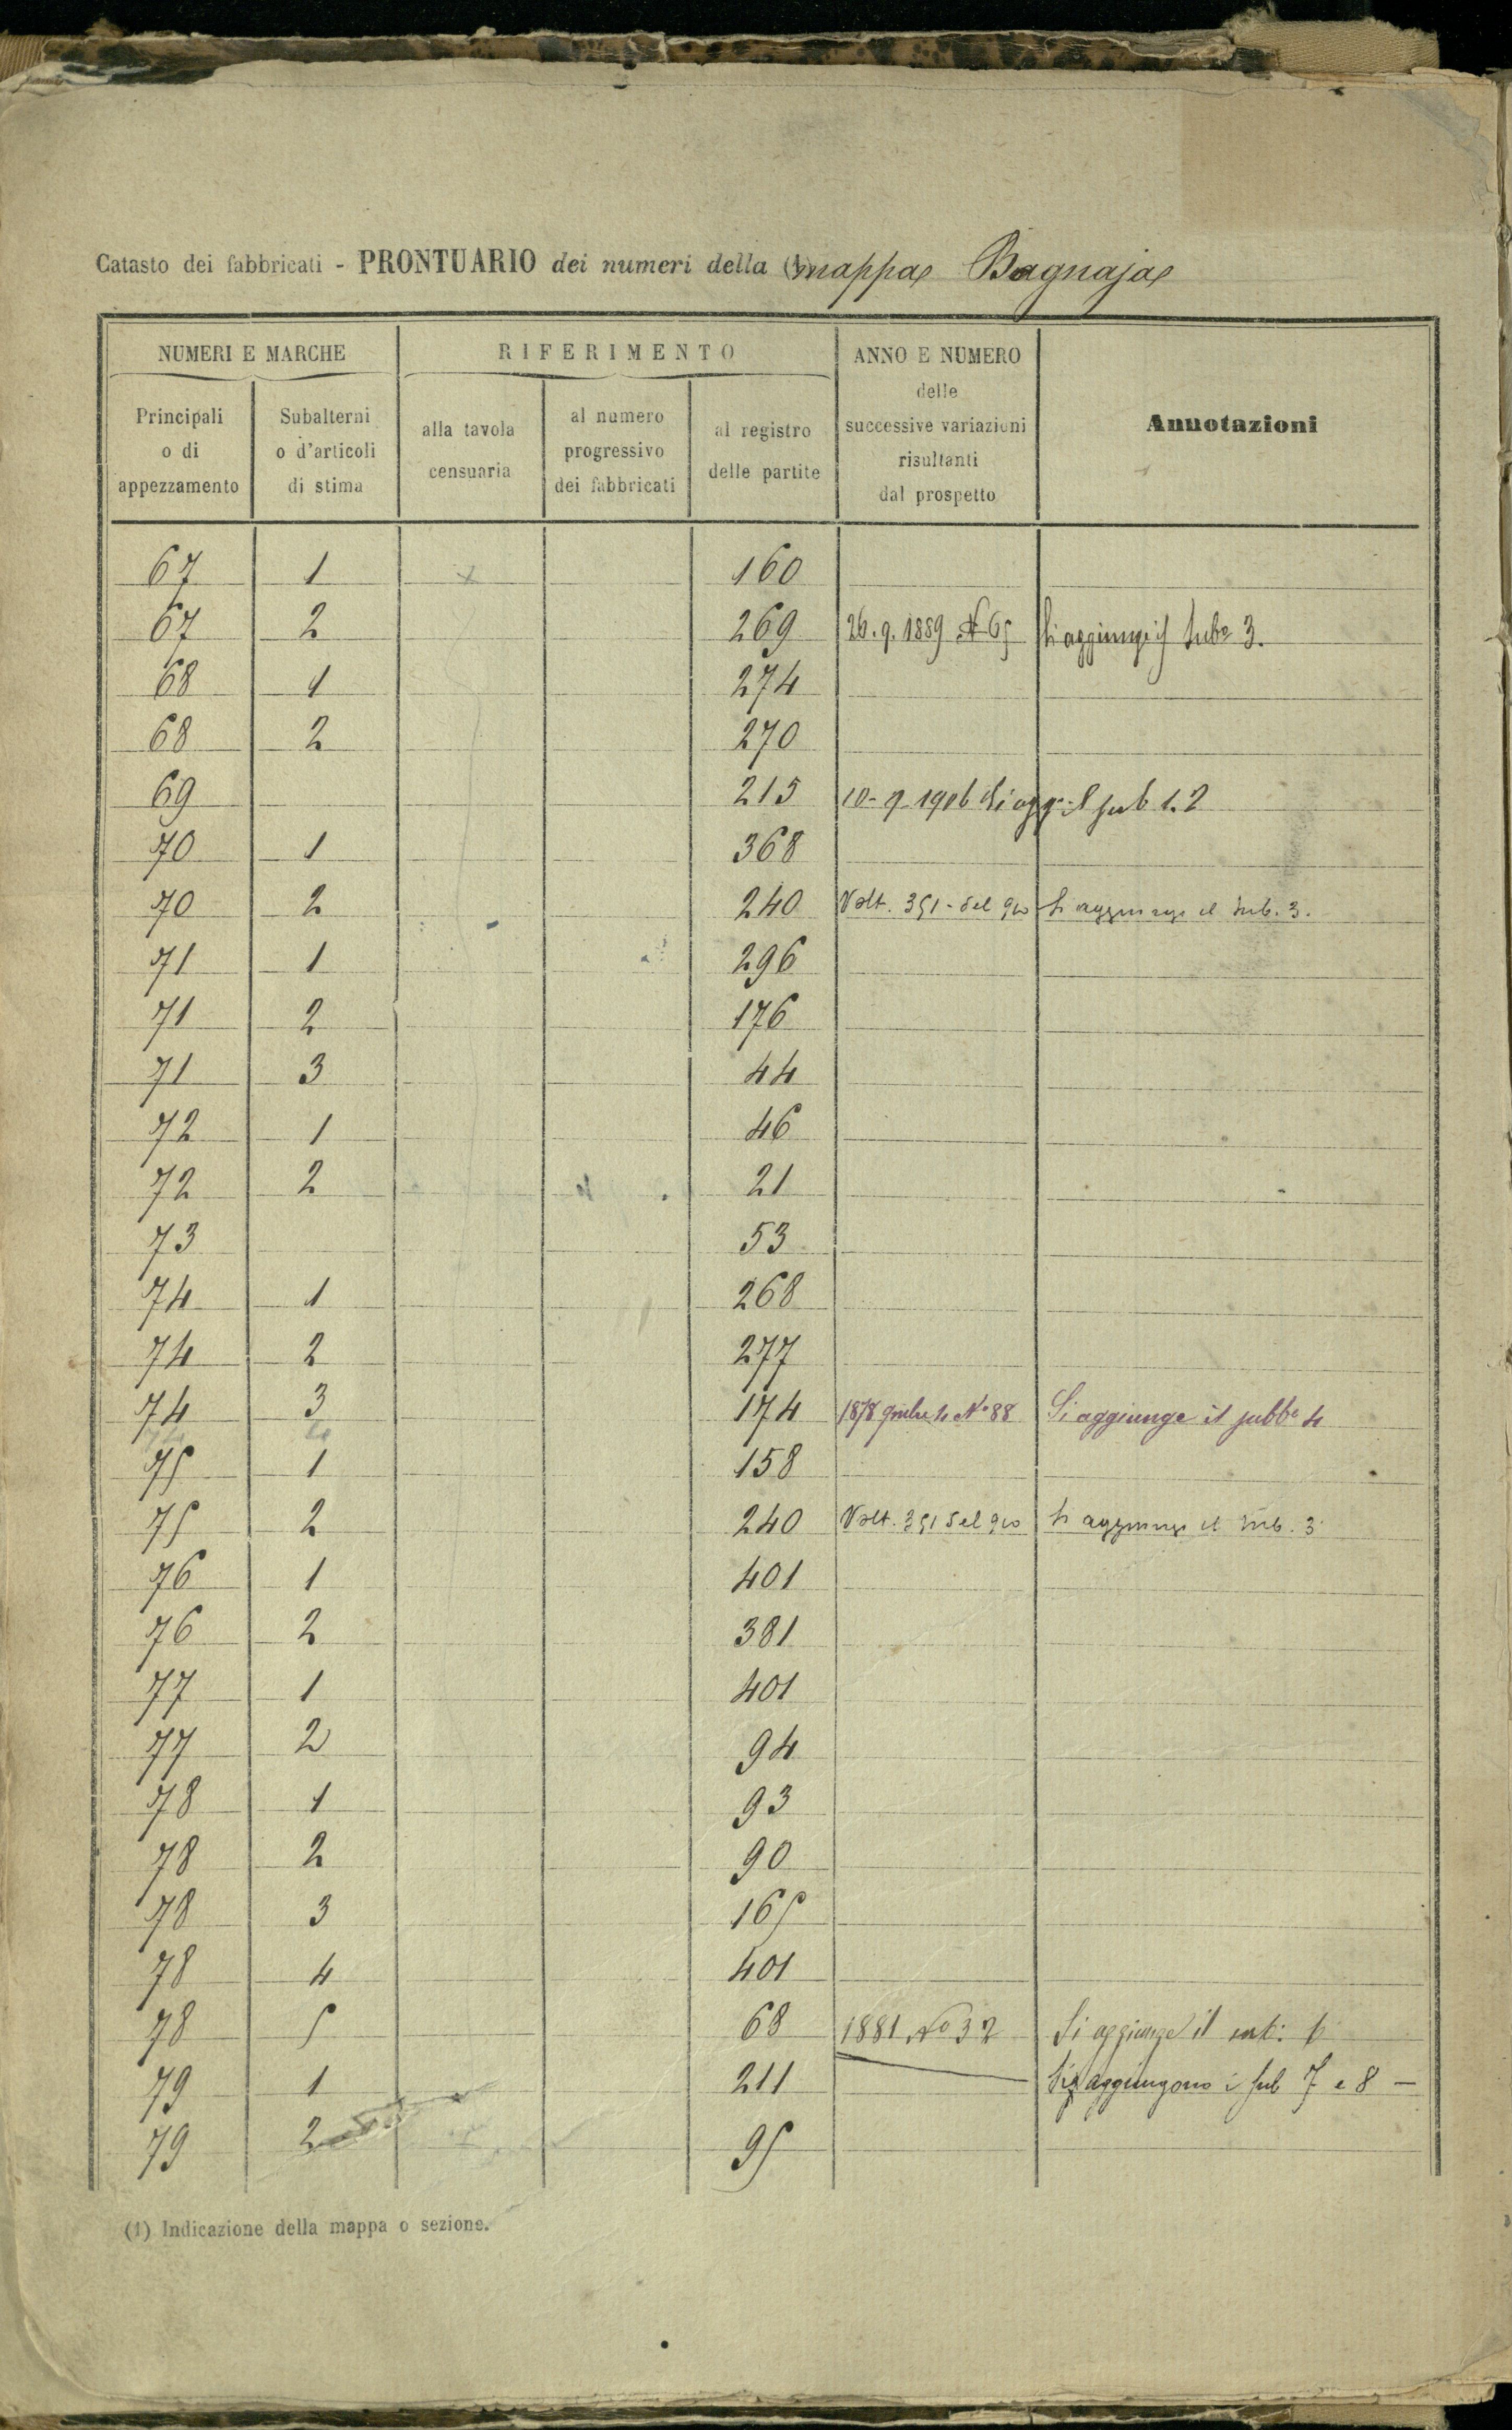 Catasto dei fabbricati - PRONTUARIO dei numeri della (1) mappa Bagnaja
NUMERI E MARCHE RIFERIMENTO ANNO E NUMERO delle successive variazioni risultanti dal prospetto Annotazioni
Principali o di appezzamento Subalterni o d'articoli di stima alla tavola censuaria al numero progressivo dei fabbricati al registro delle partite
67 1 160
67 2 269 26.9.1889 N 65 Si aggiunge il Sub° 3.
68 1 274
68 2 270
69 215 10-9-1906 Si agg. il sub 1.2
70 1 368
70 2 240 Volt. 351 - del 910 Si aggiunge il Sub. 3.
71 1 296
71 2 176
71 3 44
72 1 46
72 2 21
73 53
74 1 268
74 2 277
74 3 174 1878 9mbre 4 N° 88 Si aggiunge il subb° 4
75 1 158
75 2 240 Volt. 351 del 910 Si aggiunge il Sub. 3
76 1 401
76 2 381
77 1 401
77 2 94
78 1 93
78 2 90
78 3 165
78 4 401
78 5 68 1881 N° 32 Si aggiunge il 6
79 1 211 Si aggiungono i sub 7 e 8 —
79 2 95
(1) Indicazione della mappa o sezione.